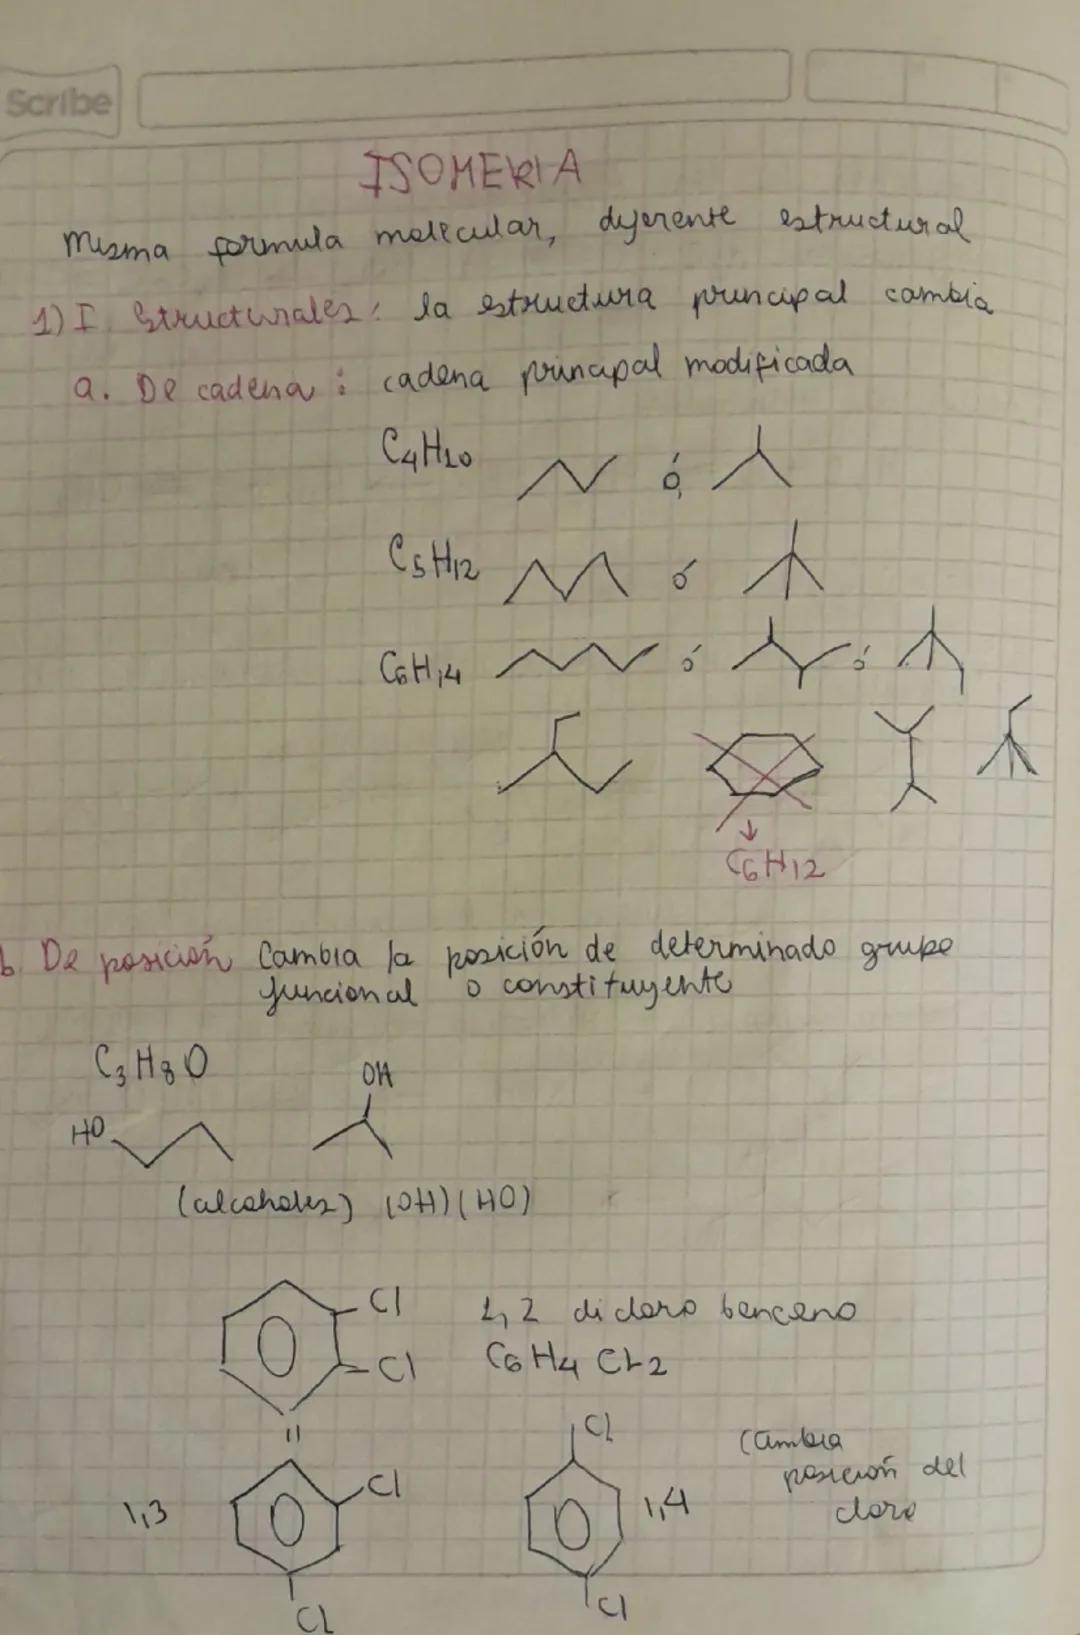 Scribe
ISOMERIA
Misma formula molecular, diferente estructural
1) I Structurales: la estructura principal cambia
a. De cadena: cadena principal modificada
C4H10
ó
C5H12
ó
C6H14
ó
ó
C6H12
b. De posición Cambia la posición de determinado grupo
funcional o constituyente
C3H8O
OH
HO
(alcoholes) (OH) (HO)
Cl
1,2 dicloro benceno
Cl
C6H4Cl2
Cl
Cambia
posición del
cloro
1,3
Cl
1,4
Cl
Cl